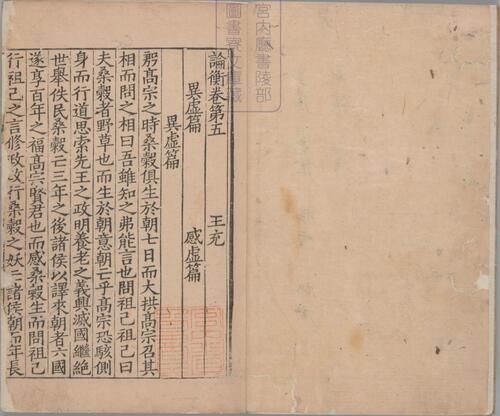 宮内廳書陵部
圖書寮文庫藏
論衡卷第五 王充
異虛篇 感虛篇
異虛篇
殷高宗之時桑穀俱生於朝七日而大拱高宗召其
相而問之相曰吾雖知之弗能言也問祖己祖己曰
夫桑穀者野草也而生於朝意朝亡乎高宗恐駭側
身而行道思索先王之政明養老之義興滅國繼絕
世舉佚民桑穀亡三年之後諸侯以譯來朝者六國
遂享百年之福高宗賢君也而感桑穀生而問祖己
行祖己之言修政改行桑穀之妖亡諸侯朝而年長